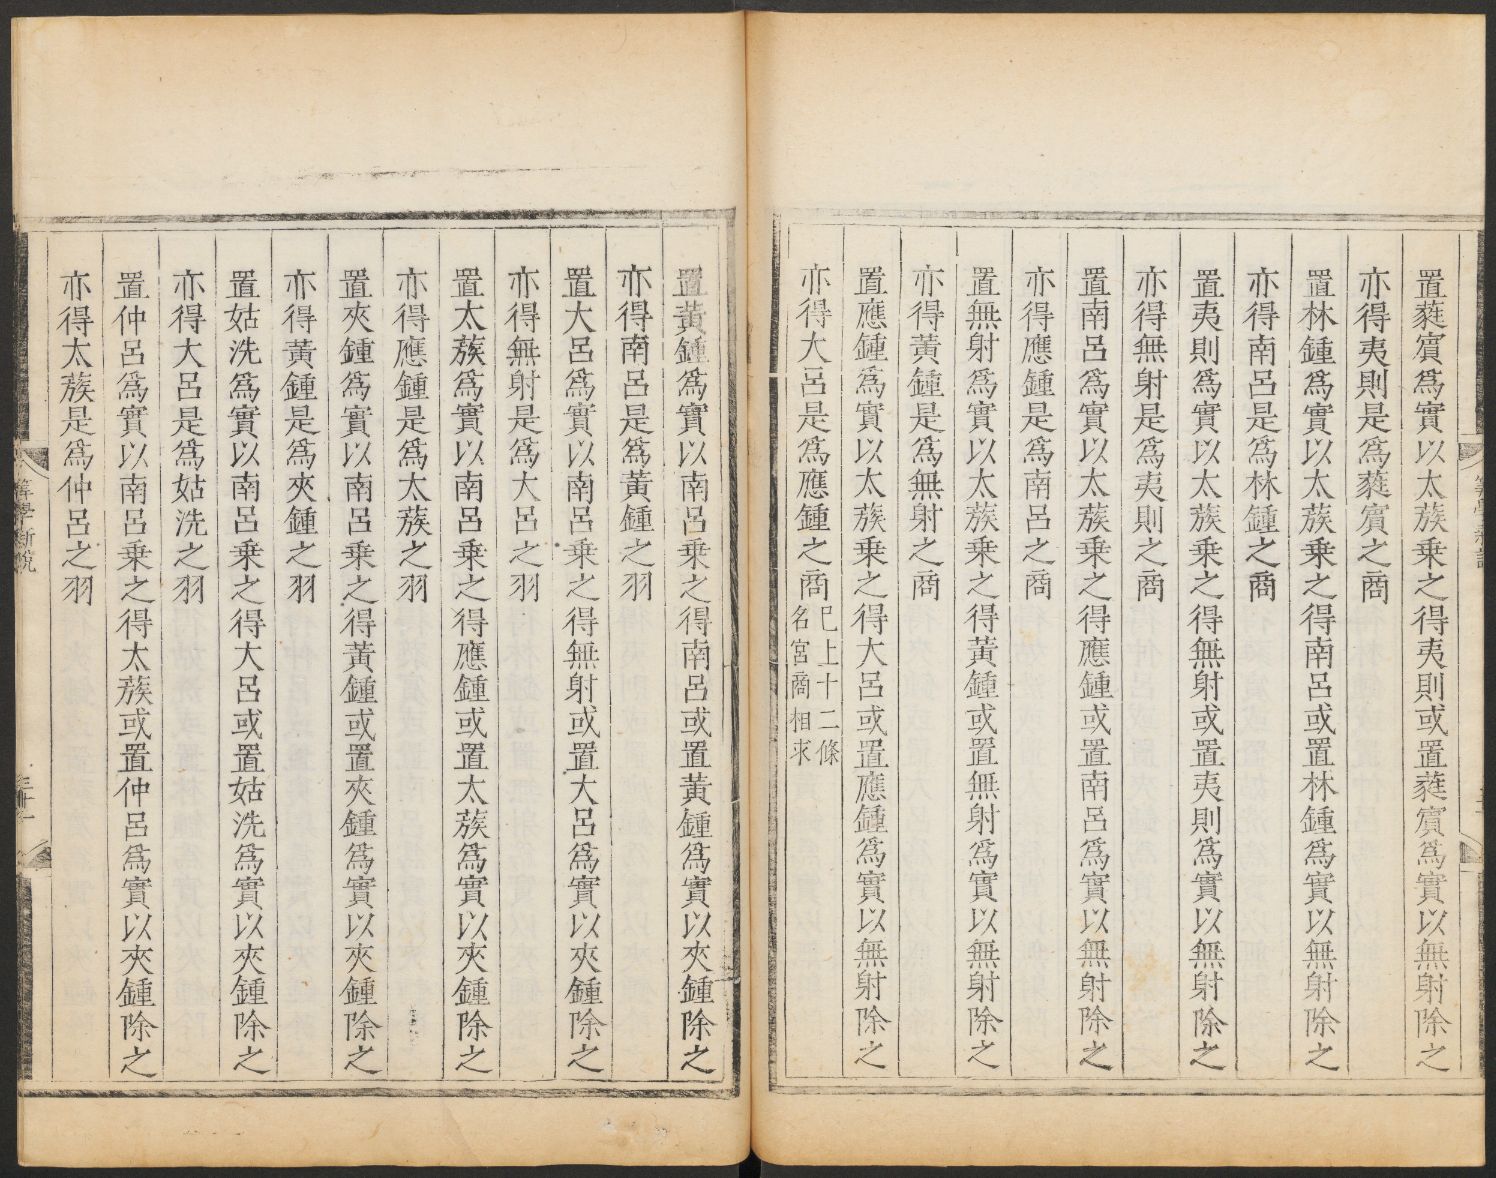 置蕤賓爲實以太蔟乗之得夷則或置蕤賓爲實以無射除之
亦得夷則是爲蕤賓之商
置林鍾爲實以太蔟乗之得南呂或置林鍾爲實以無射除之
亦得南呂是爲林鍾之商
置夷則爲實以太蔟乗之得無射或置夷則爲實以無射除之
亦得無射是爲夷則之商
置南呂爲實以太蔟乗之得應鍾或置南呂爲實以無射除之
亦得應鍾是爲南呂之商
置無射爲實以太蔟乗之得黃鍾或置無射爲實以無射除之
亦得黃鍾是爲無射之商
置應鍾爲實以太蔟乗之得大呂或置應鍾爲實以無射除之
亦得大呂是爲應鍾之商
巳上十二條
名宮商相求
置黃鍾爲實以南呂乗之得南呂或置黃鍾爲實以夾鍾除之
亦得南呂是爲黃鍾之羽
置大呂爲實以南呂乗之得無射或置大呂爲實以夾鍾除之
亦得無射是爲大呂之羽
置太蔟爲實以南呂乗之得應鍾或置太蔟爲實以夾鍾除之
亦得應鍾是爲太蔟之羽
置夾鍾爲實以南呂乗之得黃鍾或置夾鍾爲實以夾鍾除之
亦得黃鍾是爲夾鍾之羽
置姑洗爲實以南呂乗之得大呂或置姑洗爲實以夾鍾除之
亦得大呂是爲姑洗之羽
置仲呂爲實以南呂乗之得太蔟或置仲呂爲實以夾鍾除之
亦得太蔟是爲仲呂之羽
算學新說